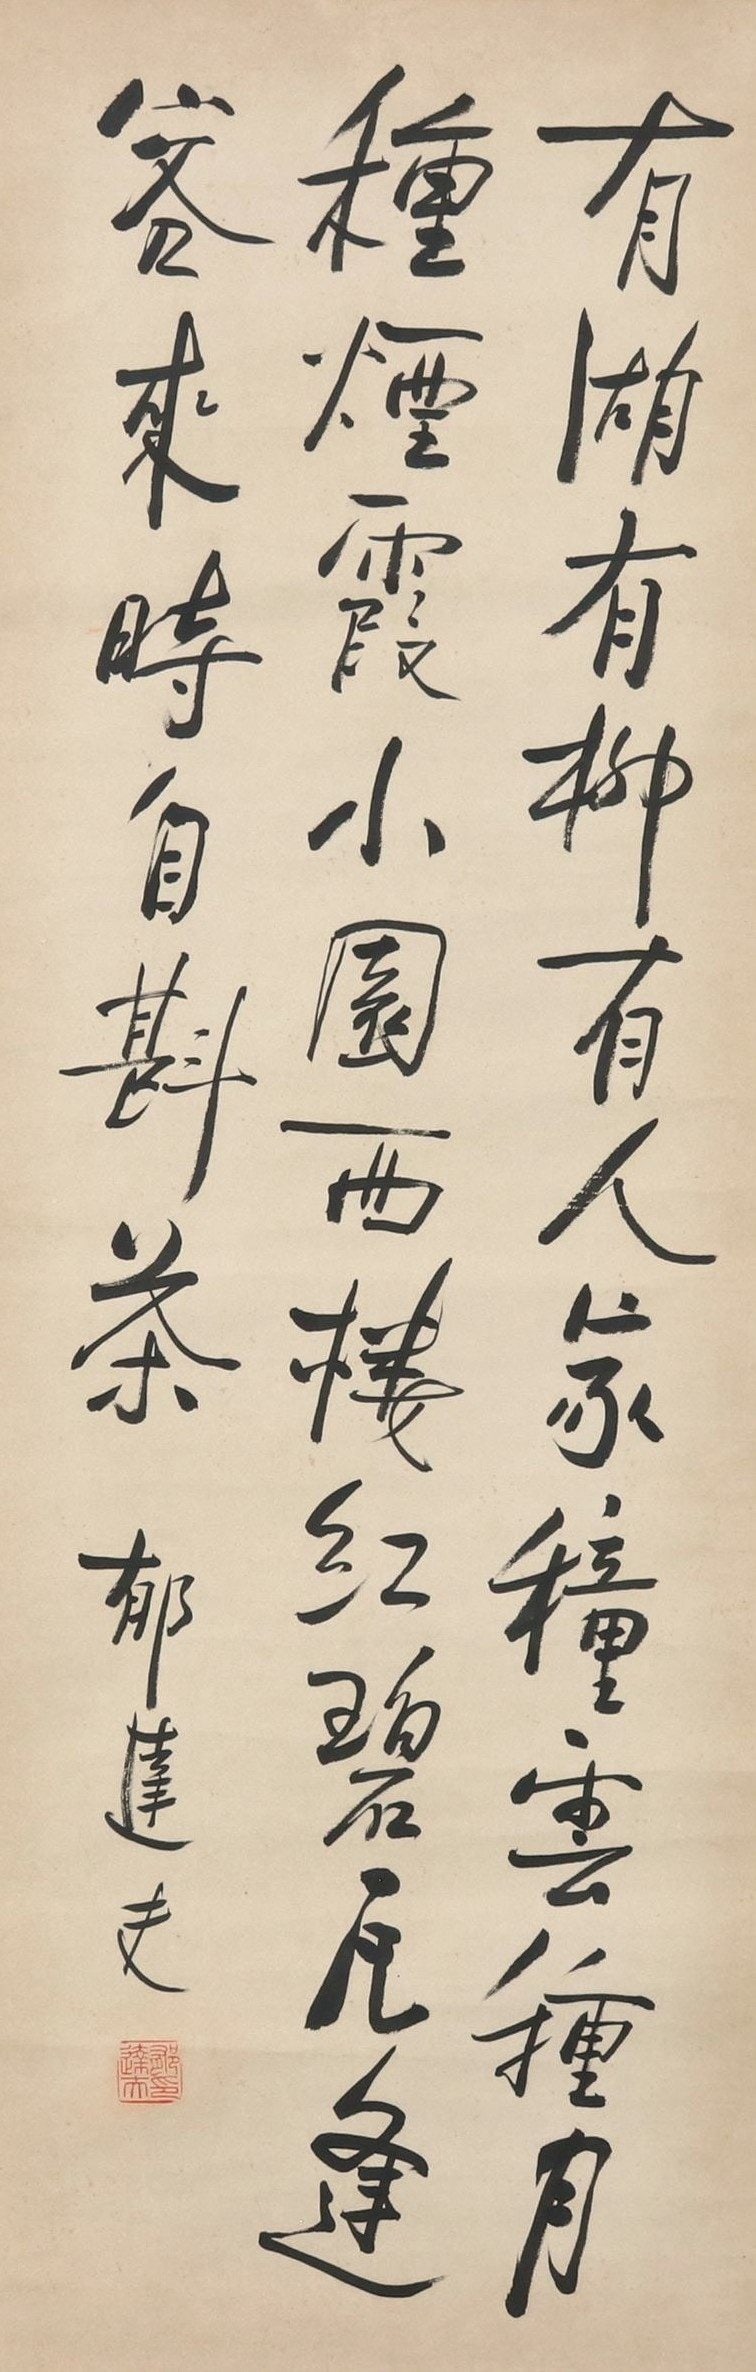 有湖有柳有人家種雲種月
種煙霞小園西樓紅碧瓦逢
客來時自斟茶 郁達夫
郁達夫印